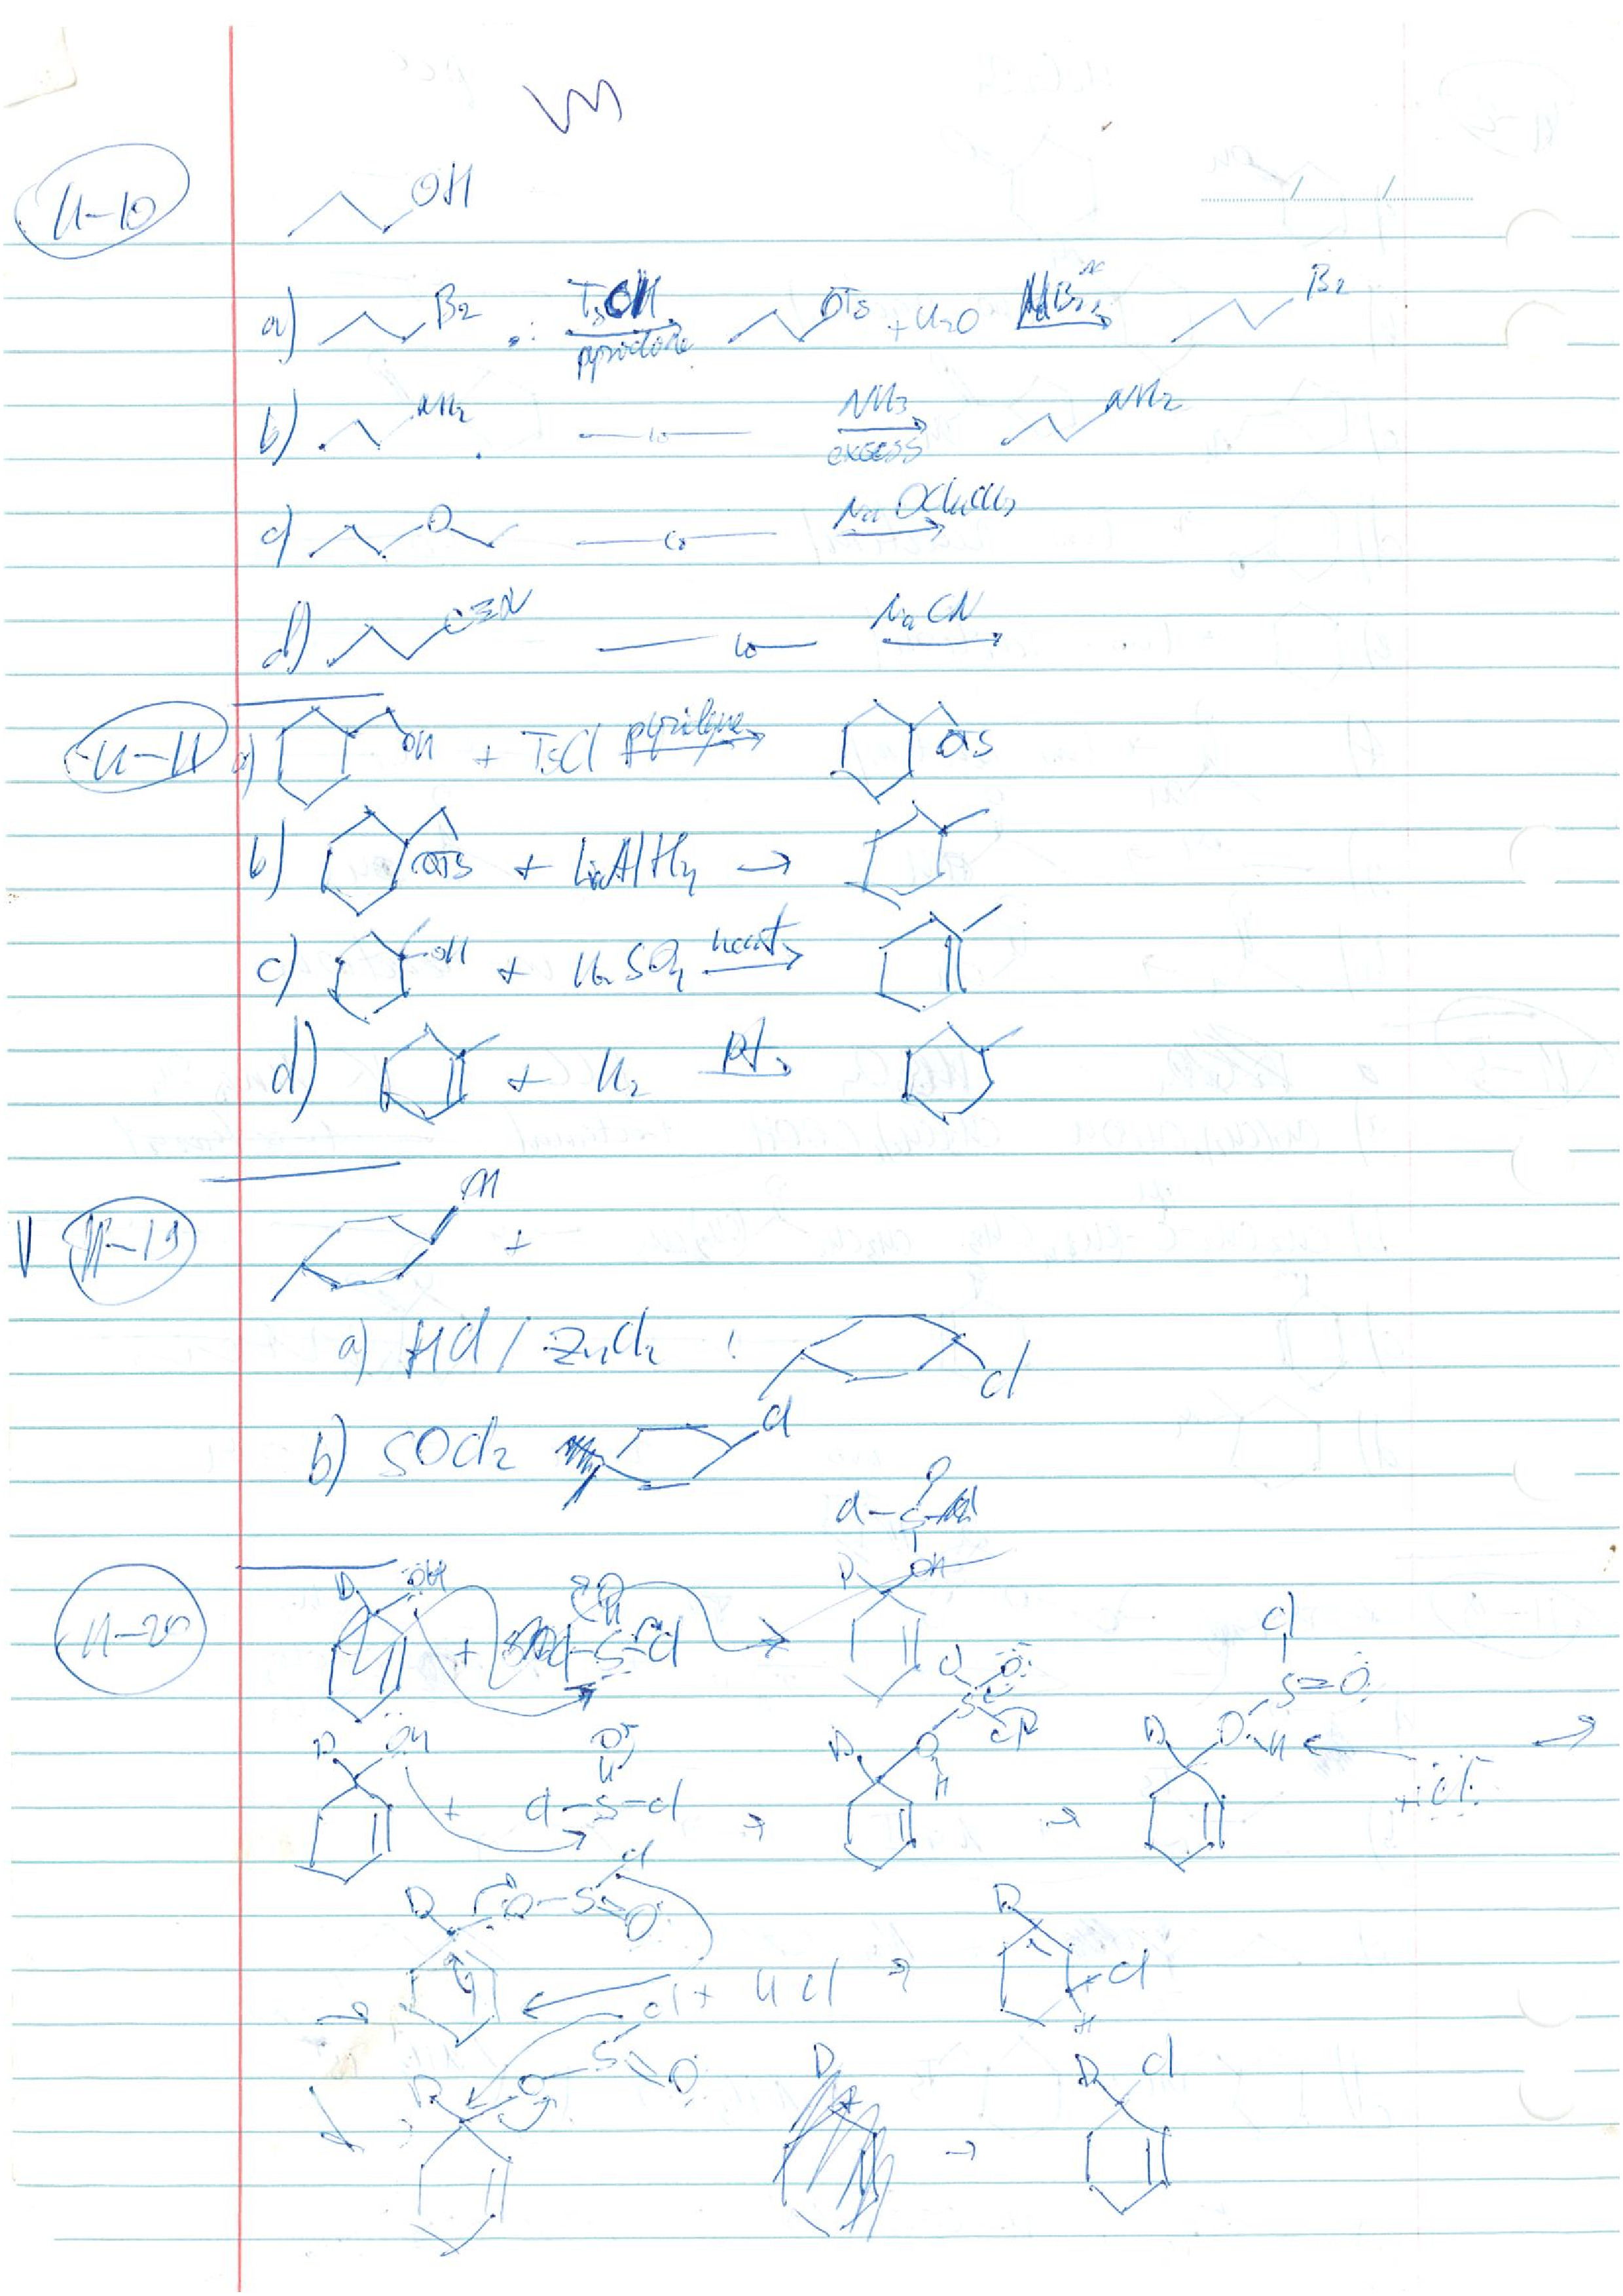 11-10
OH
a) Br TsOH pyridine OTs + H2O NaBr Br
b) NH2 NH3 excess NH2
c) O NaOCH2CH3
d) C≡N NaCN
11-11 a) OH + TsCl pyridine OTs
b) OTs + LiAlH4 →
c) OH + H2SO4 heat
d) + H2 Pt
V 11-19 OH +
a) HCl / ZnCl2 : Cl
b) SOCl2 Cl
O
Cl-S-Cl
11-20 D OH + Cl-S-Cl → D OH
Cl O S Cl
D OH + Cl-S-Cl O → D O H → D O H S=O Cl + Cl →
D O-S=O Cl
Cl + HCl → D Cl H
D O S O
D
→ D Cl